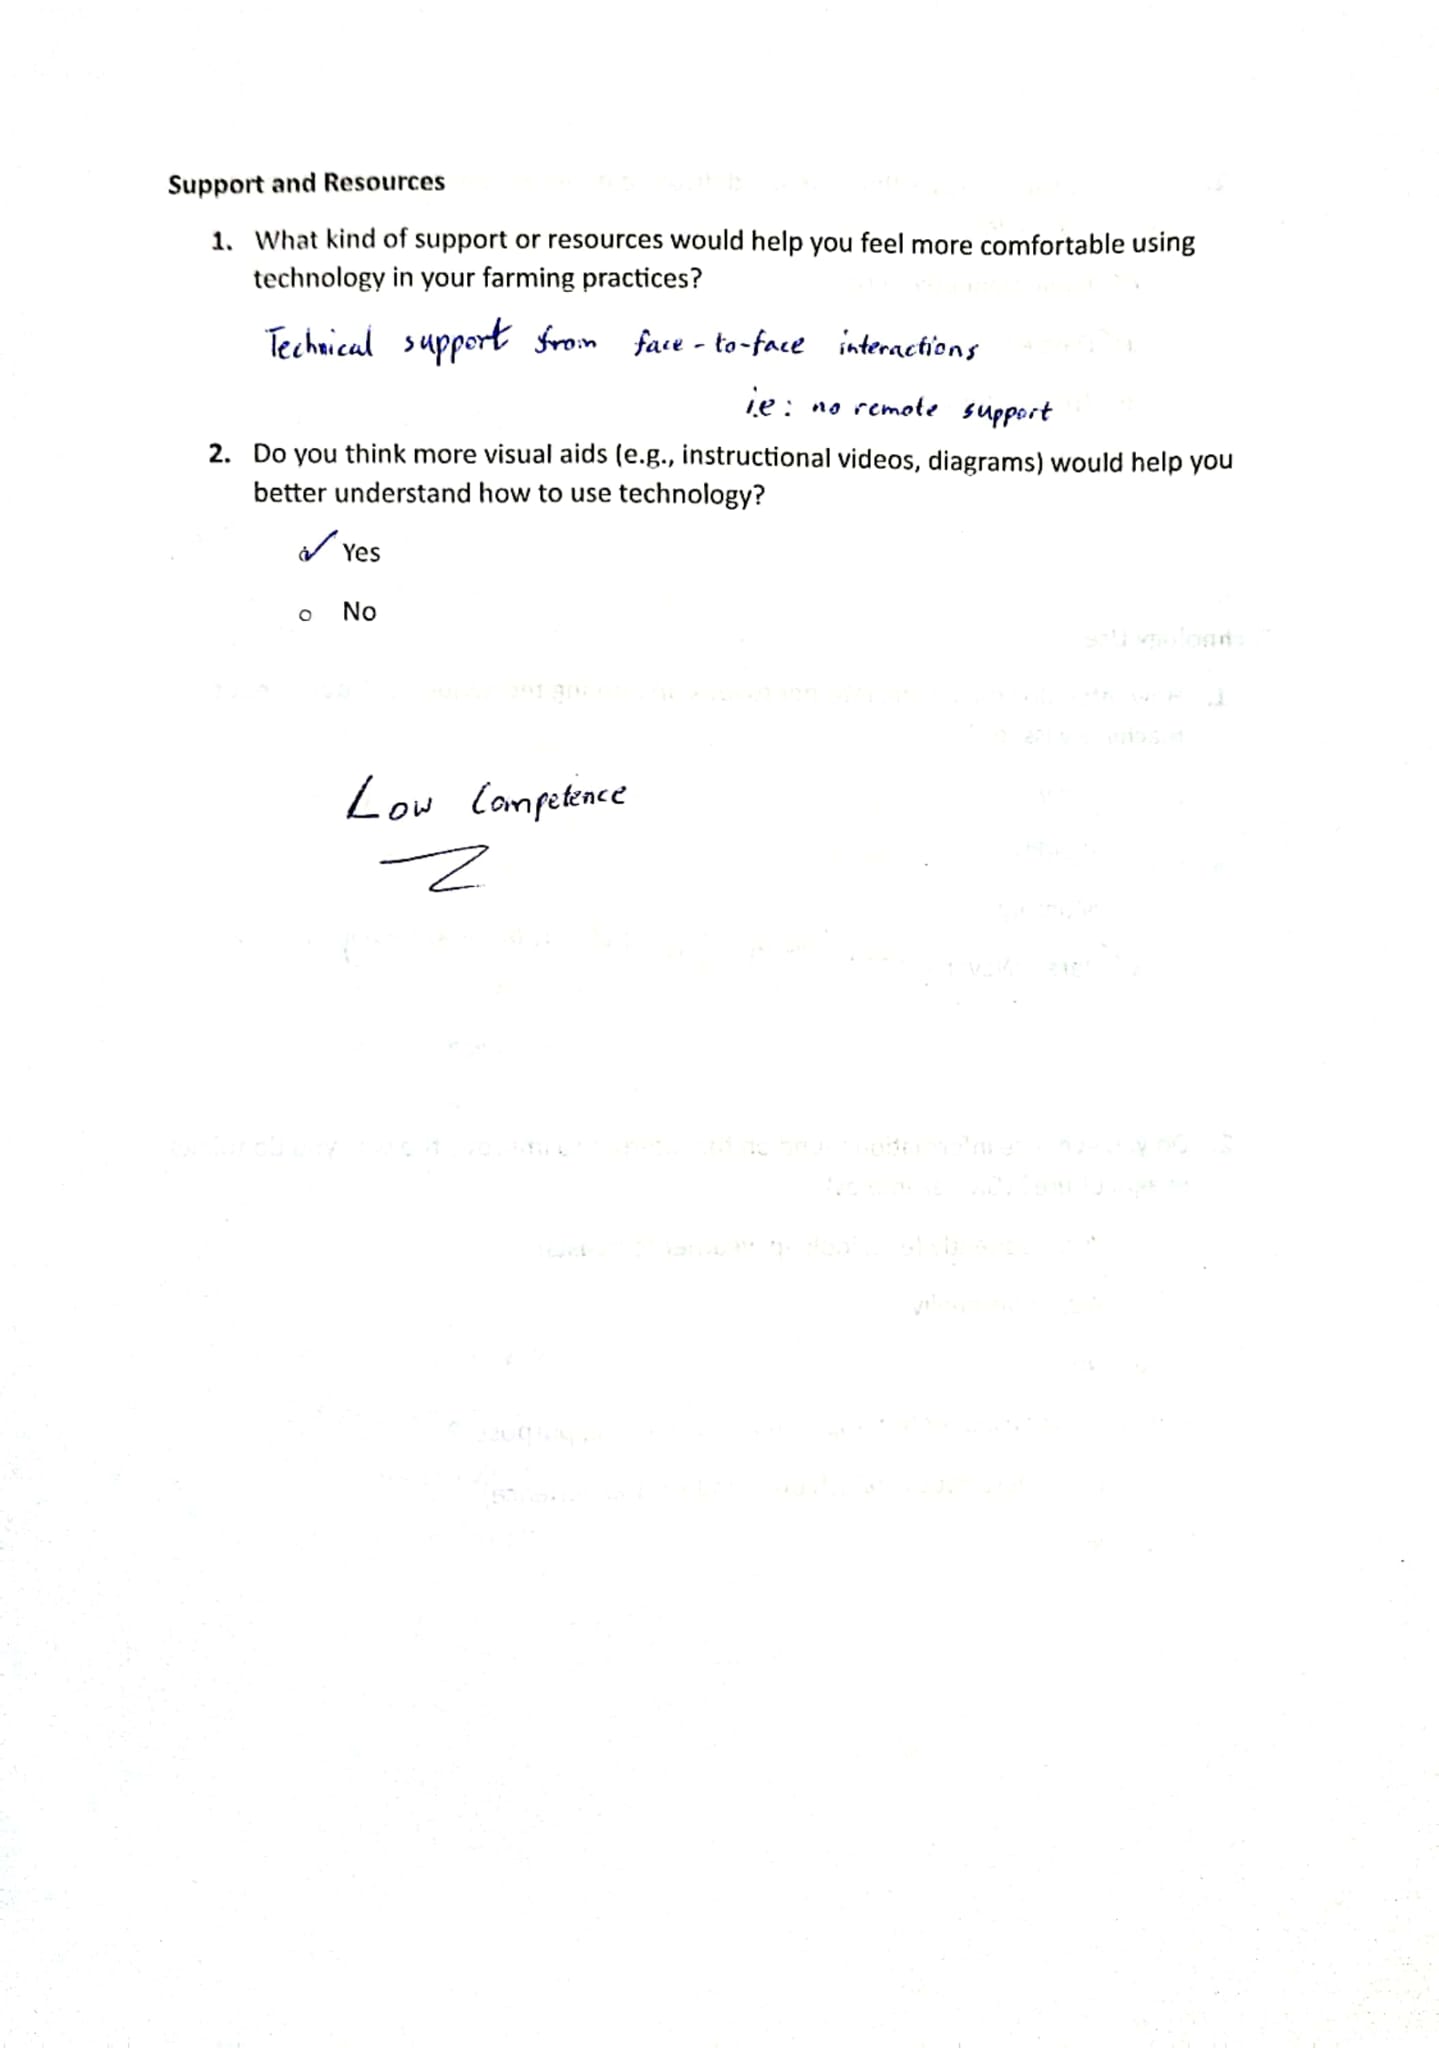 Support and Resources
1. What kind of support or resources would help you feel more comfortable using
technology in your farming practices?
Technical support from face-to-face interactions
i.e: no remote support
2. Do you think more visual aids (e.g., instructional videos, diagrams) would help you
better understand how to use technology?
✓ Yes
o No
Low Competence